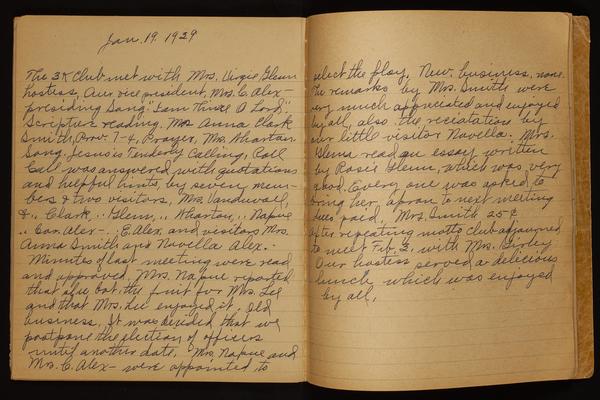 Jan. 19. 1939
The 3K Club met with Mrs. Virgie Glenn
hostess, Our vice president, Mrs. C. Alex-
presiding Song "I am Thine O Lord"
Scripture reading. Mrs Anna Clark
Smith, Prov. 1-4, Prayer, Mrs. Wharton
Song, Jesus is Tenderly Calling, Roll
Call was answered with quotations
and helpful hints, by seven mem-
bers & two visitors, Mrs. Vanduvall,
&,, Clark, ,, Glenn, ,, Wharton, ,, Napue
,, Cor. Alex-. ,, E Alex. and visitors Mrs.
Anna Smith and Novella Alex.
Minutes of last meeting were read
and approved. Mrs. Napue reported
that she got the fruit for Mrs. Lee
and that Mrs. Lee enjoyed it. Old
business. It was decided that we
postpone the election of officers
until another date. Mrs. Napue and
Mrs. C. Alex- were appointed to
select the play. New business, none.
The remarks by Mrs. Smith were
very much appreciated and enjoyed
by all, also the recitation by
our little visitor Novella. Mrs.
Glenn read an essay written
by Rosie Glenn, which was very
good. Every one was asked to
bring her apron to next meeting
dues paid, Mrs. Smith 25¢
After repeating motto club adjourned
to meet Feb. 2, with Mrs.
Our hostess served a delicious
lunch which was enjoyed
by all.